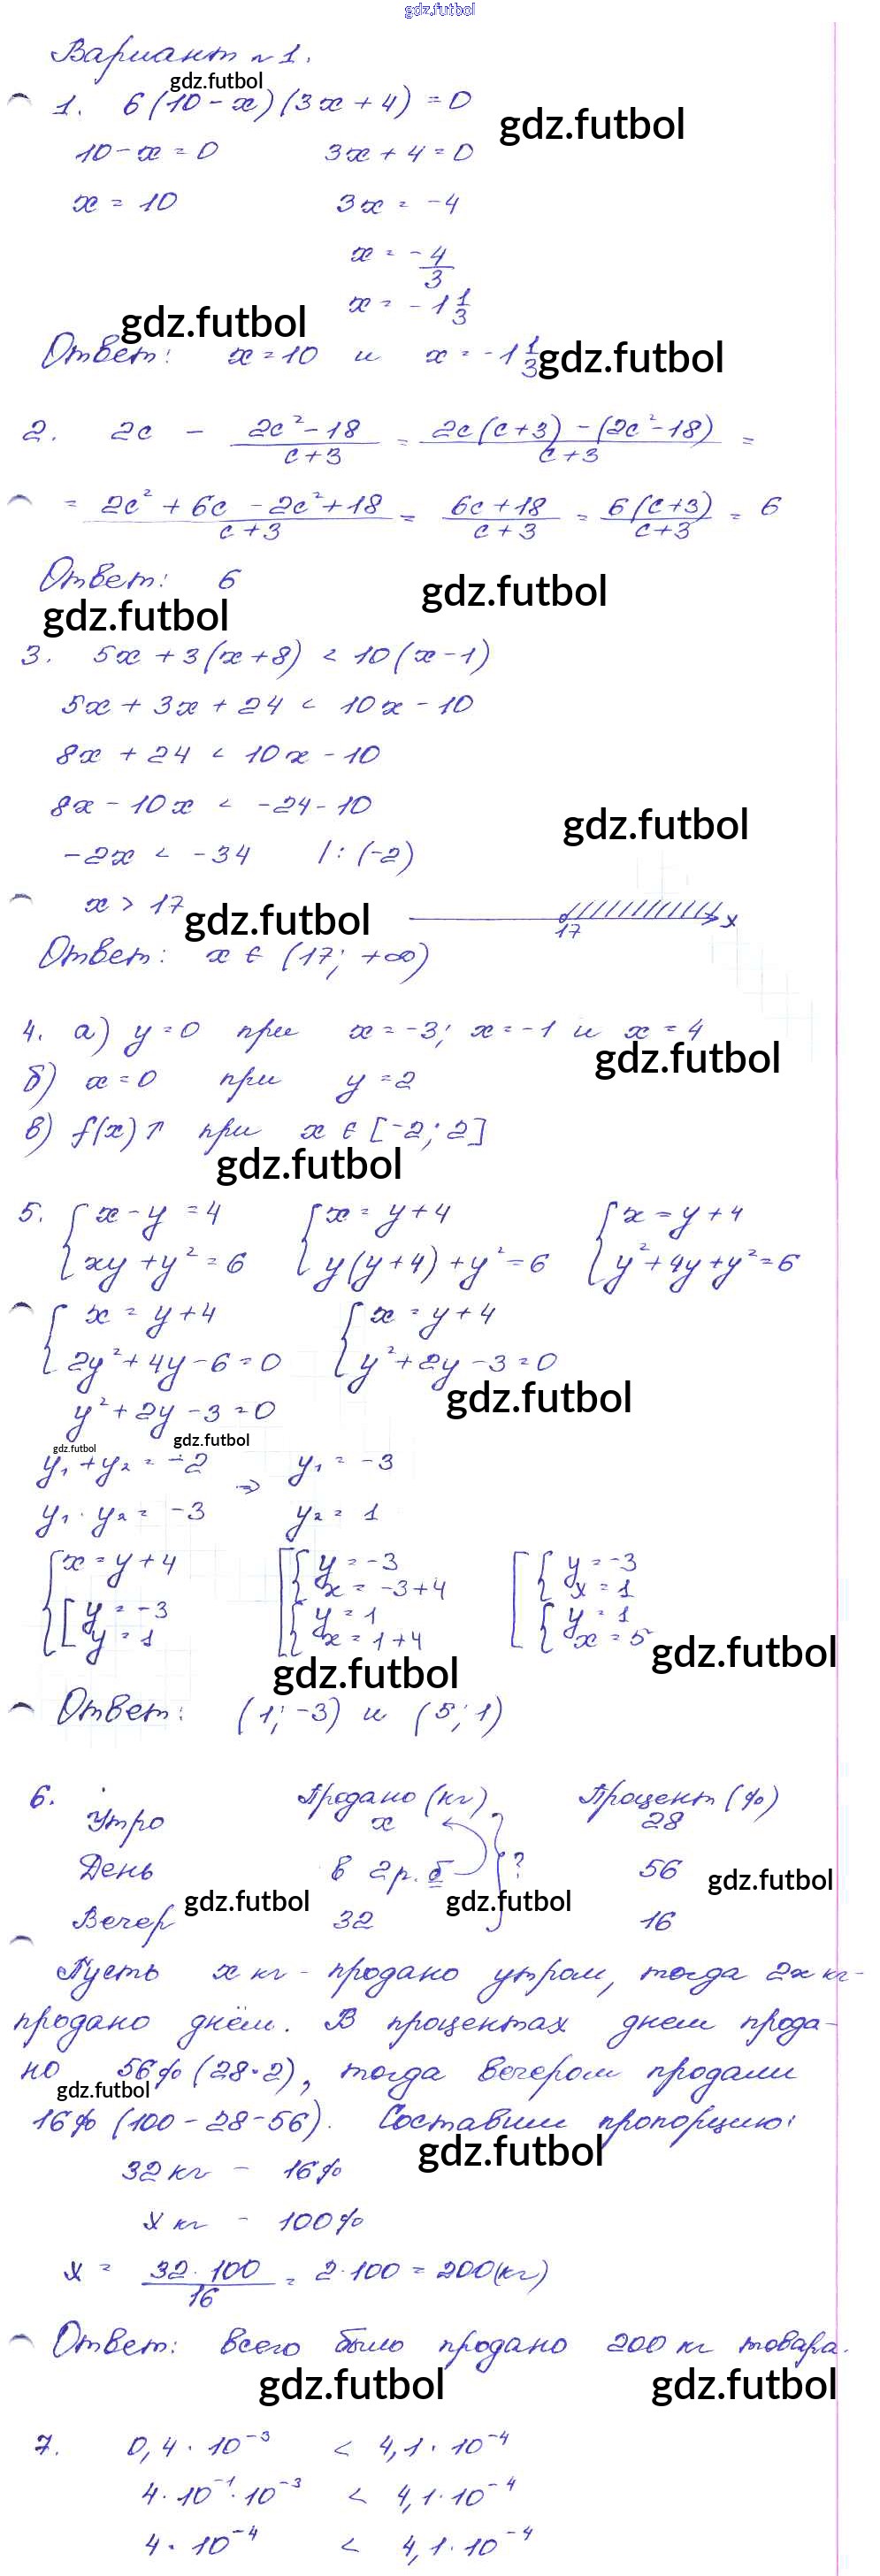 gdz.futbol
Вариант №1.
gdz.futbol
1. 6(10-x)(3x+4)=0
gdz.futbol
10-x=0 3x+4=0
x=10 3x=-4
x=-4/3
x=-1 1/3
gdz.futbol
Ответ: x=10 и x=-1 1/3
gdz.futbol
2. 2c - (2c²-18)/(c+3) = (2c(c+3)-(2c²-18))/(c+3) =
= (2c²+6c-2c²+18)/(c+3) = (6c+18)/(c+3) = (6(c+3))/(c+3) = 6
Ответ: 6
gdz.futbol
gdz.futbol
3. 5x+3(x+8) < 10(x-1)
5x+3x+24 < 10x-10
8x+24 < 10x-10
8x-10x < -24-10
gdz.futbol
-2x < -34 |:(-2)
x > 17
gdz.futbol
17 x
Ответ: x ∈ (17; +∞)
4. а) y=0 при x=-3; x=-1 и x=4
gdz.futbol
б) x=0 при y=2
в) f(x)↑ при x ∈ [-2; 2]
gdz.futbol
5. { x-y=4 { x=y+4 { x=y+4
{ xy+y²=6 { y(y+4)+y²=6 { y²+4y+y²=6
{ x=y+4 { x=y+4
{ 2y²+4y-6=0 { y²+2y-3=0
gdz.futbol
y²+2y-3=0
gdz.futbol
gdz.futbol
y₁+y₂=-2 ⇒ y₁=-3
y₁·y₂=-3 y₂=1
{ x=y+4 [ { y=-3 [ { y=-3
{ x=-3+4 { x=1
{ [ y=-3 { y=1 { y=1
y=1 { x=1+4 { x=5
gdz.futbol
gdz.futbol
Ответ: (1; -3) и (5; 1)
6. Продано (кг) Процент (%)
Утро x 28
День в 2 р. б ? 56
gdz.futbol
Вечер 32 16
gdz.futbol
gdz.futbol
Пусть x кг - продано утром, тогда 2x кг -
продано днём. В процентах днем прода-
но 56% (28·2), тогда вечером продали
gdz.futbol
16% (100-28-56). Составим пропорцию:
gdz.futbol
32 кг - 16%
x кг - 100%
x = (32·100)/16 = 2·100 = 200 (кг)
Ответ: всего было продано 200 кг товара.
gdz.futbol
gdz.futbol
7. 0,4·10⁻³ < 4,1·10⁻⁴
4·10⁻¹·10⁻³ < 4,1·10⁻⁴
4·10⁻⁴ < 4,1·10⁻⁴